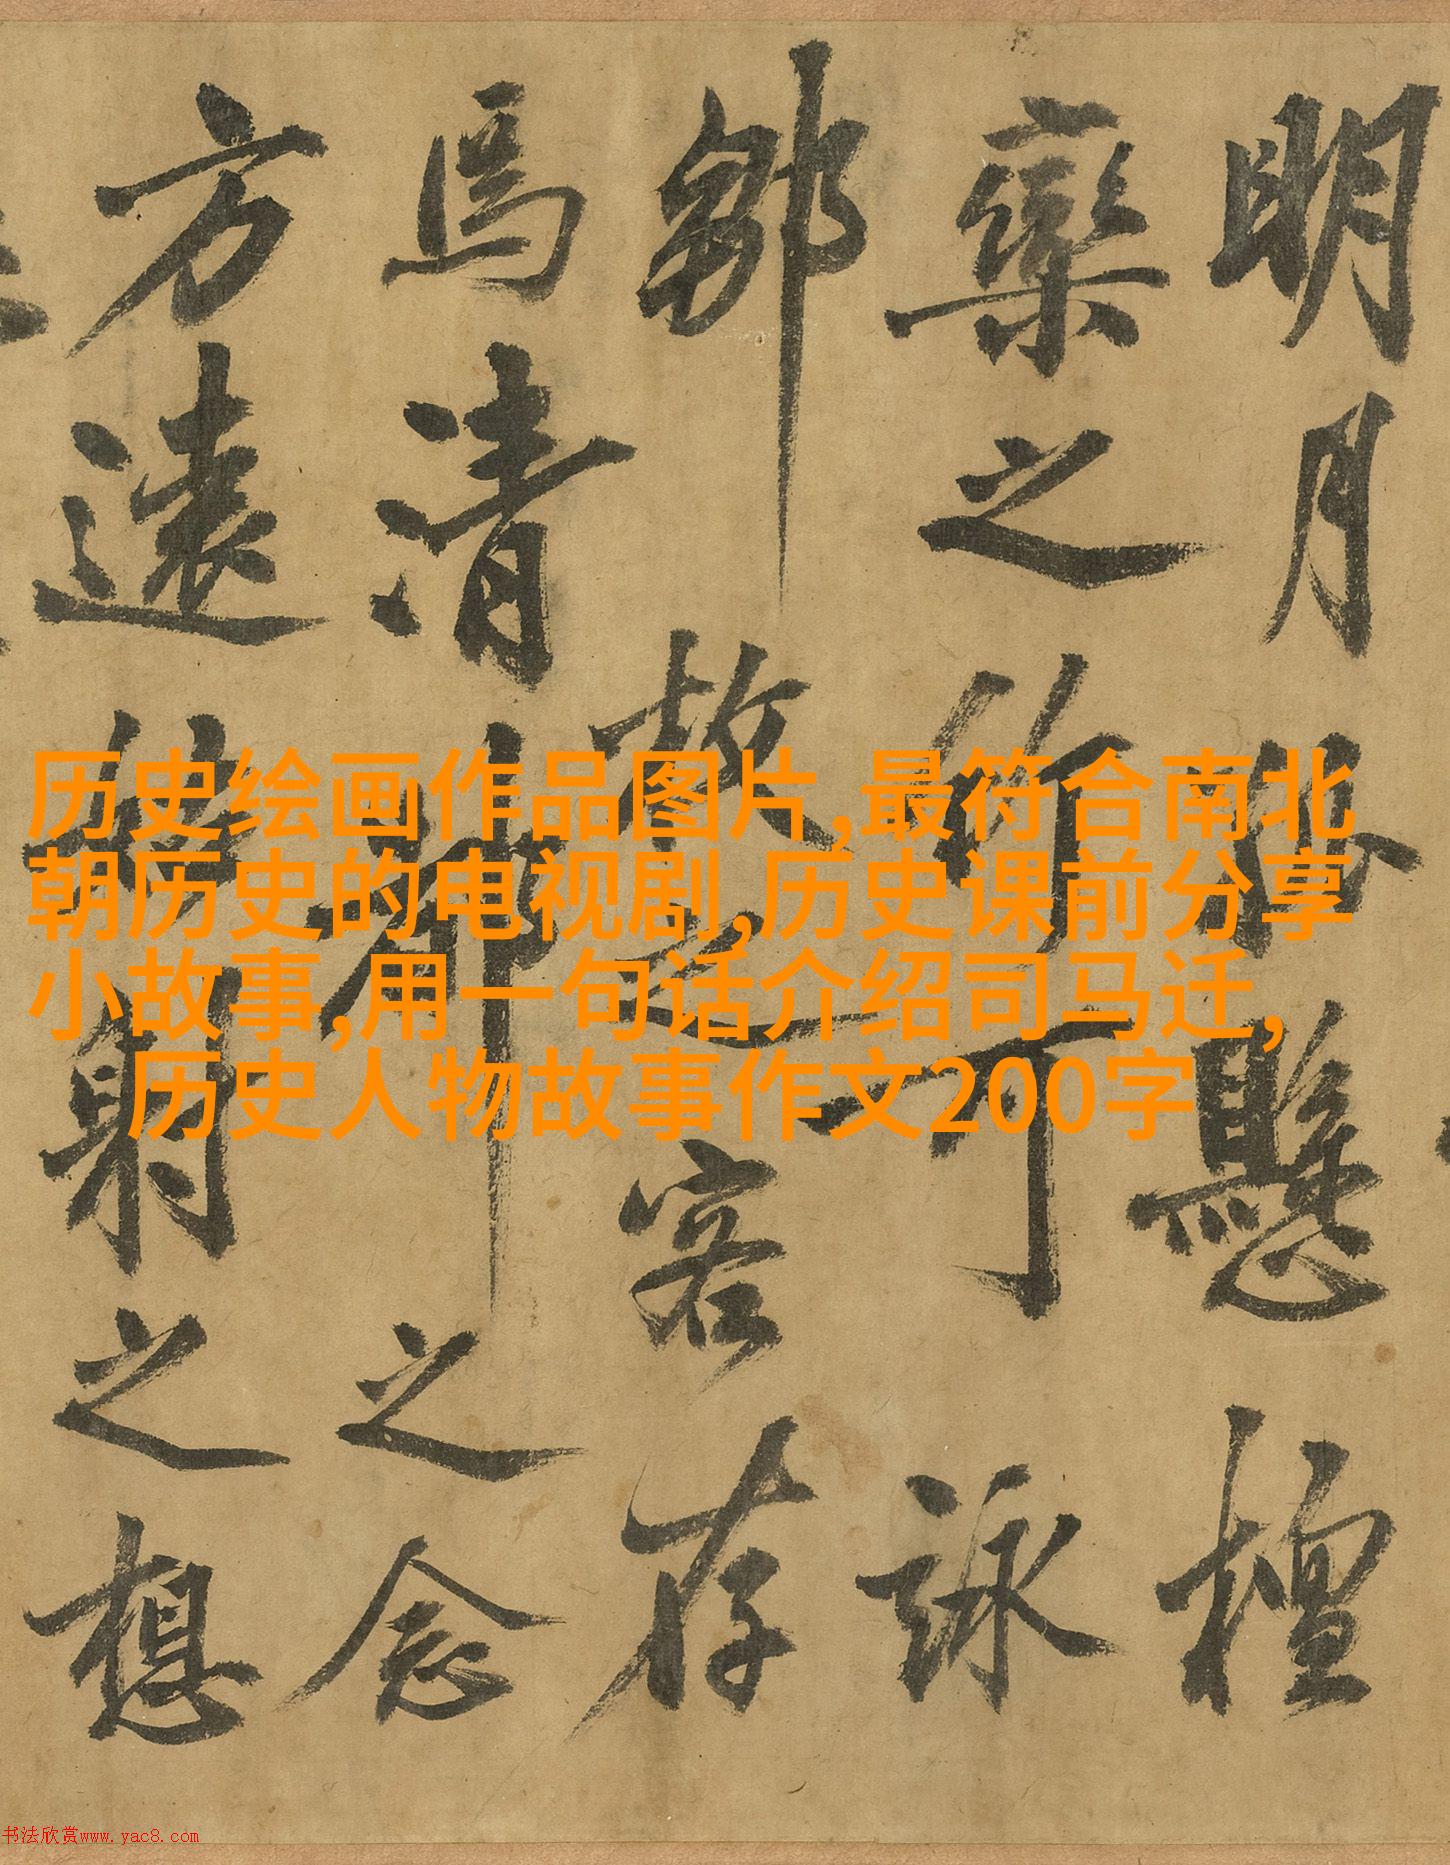 明月懸檀
欒之竹可詠
鄒枚之客存
焉清都之念
方遠姑射之想
历史绘画作品图片,最符合南北
朝历史的电视剧,历史课前分享
小故事,用一句话介绍司马迁,
历史人物故事作文200字
书法欣赏www.yac8.com